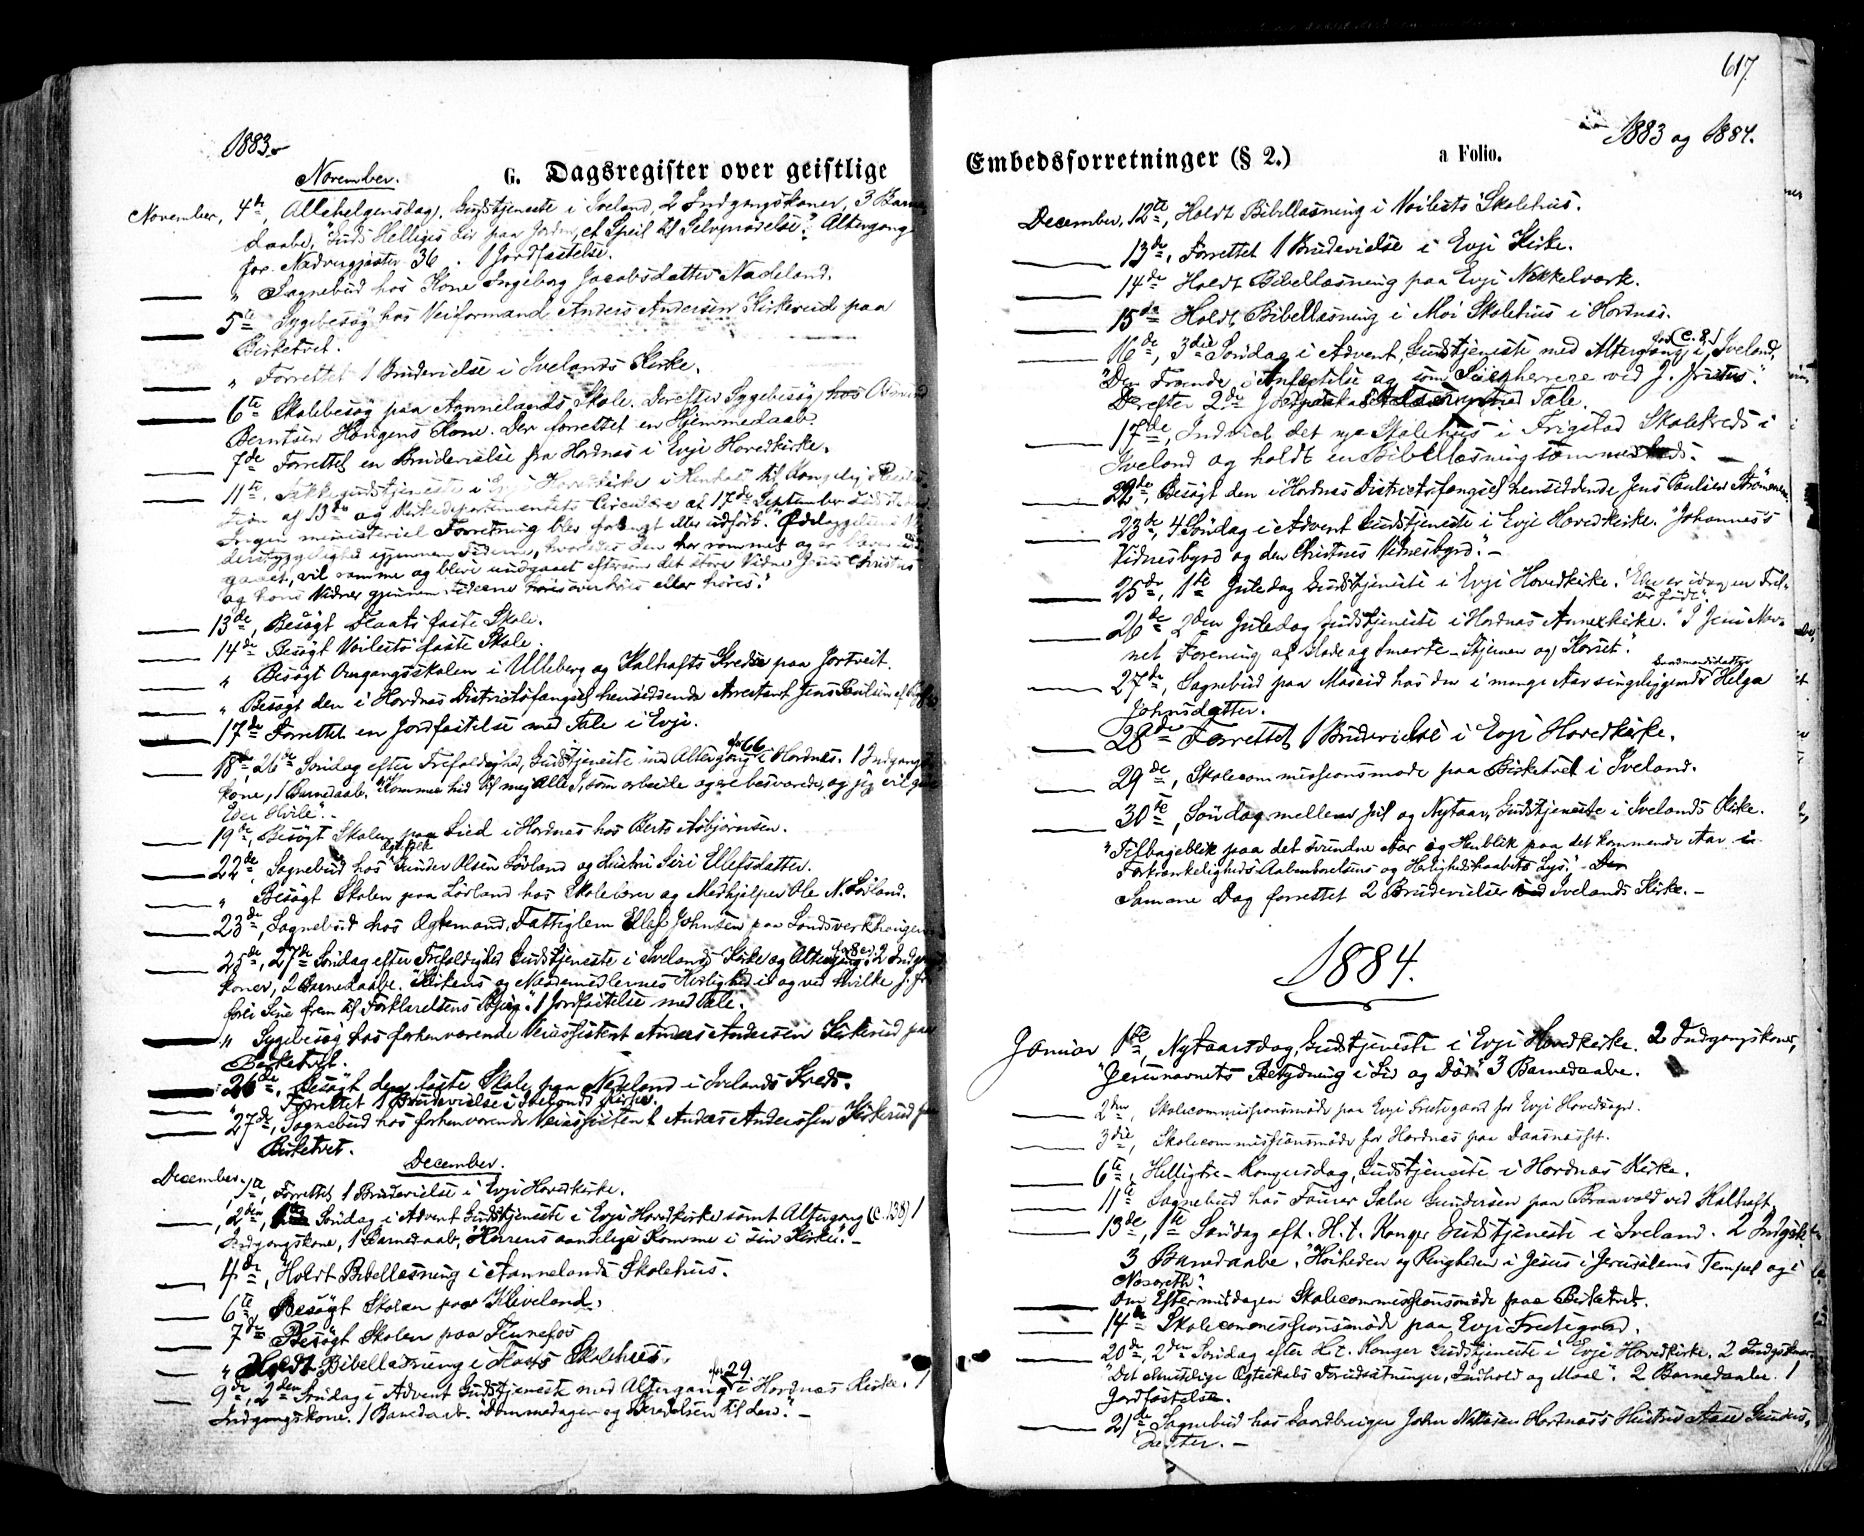 1883
November.
G. Dagsregister over geistlige
November, 4de, Allehelgensdag. Gudstjeneste i Iveland, 2 Indgangskoner, 3 Barne-
daabe. "Guds Helliges Liv paa Jorden, et Speil til Selvprøvelse". Altergang
for Nadvergjæster 36. 1 Jordfæstelse.
" Sognebud hos Kone Ingeborg Jacobsdatter Nateland.
5te Sygebesøg hos Veiformand Anders Andersen Kirkerud paa
Birketvet.
" Forrettet 1 Brudevielse i Ivelands Kirke.
6te Skolebesøg paa Aannelands Skole. Derefter Sygebesøg hos
Berntsen Haugens Kone. Der forrettet en Hjemmedaab.
7de Forrettet en Brudevielse fra Hordnæs i Evje Hovedkirke.
11te, Takkegudstjeneste i Evje Hovedkirke i Henhold til Kongelig
af 13de og Kirkedepartementets Circulære af 17de September
Ingen ministeriel Forretning blev forlangt eller udført.
gjennem Tiderne, hvorledes den har rommet og er bleven
gaaet, vil romme og blive undgaaet eftersom det store Vidne Jesus Christus
og hans Vidner gjennem Tiderne høres eller høres."
13de, Besøgt Flaats faste Skole.
14de Besøgt Voilests faste Skole.
" Besøgt Omgangsskolen i Ulleberg og Kalhafts Kreds paa Jortveit.
" Besøgt den i Hordnæs Distriktsfængsel hensiddende Arrestant Jens Paulsen
17de Forrettet en Jordfæstelse med Tale i Evje.
18de, 26de Søndag efter Trefoldighed, Gudstjeneste med Altergang for 66 i Hordnæs. 1 Indgangs-
kone, 1 Barnedaab. "Kommer hid til mig Alle I, som arbeide og ere besværede, og jeg vil give
Eder Hvile".
19de, Besøgt Skolen paa Lied i Hordnæs hos Berts Asbjørnsen.
22de, Sognebud hos Gunder Olsen Lørland og Hustru Siri Ellefsdatter.
" Besøgt Skolen paa Lørland hos Skolelærer og Medhjelper Ole N. Lørland.
23de, Sognebud hos Ægtemand, Fattiglem Ellef Johnsen paa Landsverkhaugen
25de, 27de Søndag efter Trefoldighed Gudstjeneste i Ivelands Kirke og Altergang for 8, 2 Indgangs-
koner, 2 Barnedaabe. "Kirkens og Naademidlernes Herlighed i og ved hvilke J.
fører Sine frem til Forklarelsens Bjerg". 1 Jordfæstelse med Tale.
" Sygebesøg hos forhenværende Veiassistent Anders Andersen Kirkerud paa
Birketvet.
26de, Besøgt den faste Skole paa Nateland i Ivelands Kreds.
" Forrettet 1 Brudevielse i Ivelands Kirke.
27de, Sognebud hos forhenværende Veiassistent Anders Anderssen Kirkerud paa
Birketvet.
December.
December, 1ste, Forrettet 1 Brudevielse i Evje Hovedkirke.
2den, 1ste Søndag i Advent Gudstjeneste i Evje Hovedkirke samt Altergang (c. 138) 1
Indgangskone, 1 Barnedaab, "Herrens aandelige Komme i Sin Kirke". –
4de, Holdt Bibellæsning i Aannelands Skolehus.
6te, Besøgt Skolen paa Kleveland.
7de Besøgt Skolen paa Fennefos
" Holdt Bibellæsning i Flaats Skolehus.
9de, 2den Søndag i Advent Gudstjeneste med Altergang for 29 i Hordnæs Kirke. 1
Indgangskone. 1 Barnedaab. "Dommedagen og Beredelsen til den." –
617.
1883 og 1884.
Embedsforretninger (§ 2.) a Folio.
December, 12te, Holdt Bibellæsning i Voilests Skolehus.
13de, Forrettet 1 Brudevielse i Evje Kirke.
14de Holdt Bibellæsning paa Evje Nikkelværk.
15de Holdt Bibellæsning i Moi Skolehus i Hordnæs.
16de, 3die Søndag i Advent, Gudstjeneste med Altergang for (C. 8.) i Iveland.
"Den Troende i Anfægtelse og som Seierherre ved J. Christus".
Derefter 2de Jordfæstelser med Tale.
17de, Indviet det nye Skolehus i Frigstad Skolekreds i
Iveland og holdt en Bibellæsning sammesteds. –
22de, Besøgt den i Hordnæs Districtsfængsel hensiddende Jens Paulsen
23de, 4 Søndag i Advent Gudstjeneste i Evje Hovedkirke. "Johannes's
Vidnesbyrd og den Christnes Vidnesbyrd". –
25de, 1ste Juledag Gudstjeneste i Evje Hovedkirke. "Eder er idag en Frel-
ser født".
26de, 2den Juledag Gudstjeneste i Hordnæs Annexkirke. "I Jesu Nav-
net Forening af Glæde og Smerte – Stjernen og Korset".
27de, Sognebud paa Maseid hos den i mange Aar sengeliggende Helga
Johnsdatter.
28de Forrettet 1 Brudevielse i Evje Hovedkirke.
29de, Skolecommissionsmøde paa Birketvet i Iveland.
30te, Søndag mellem Jul og Nytaar, Gudstjeneste i Ivelands Kirke.
"Tilbageblik paa det svundne Aar og Henblik paa det kommende Aar i
Forkrænkelighedens Aabenbarelsens og Herlighedshaabets Lys".
Samme Dag forrettet 2 Brudevielser i Ivelands Kirke. –
1884.
Januar 1ste, Nytaarsdag, Gudstjeneste i Evje Hovedkirke. 2 Indgangskoner,
"Jesunavnets Betydning i Liv og Død". 3 Barnedaabe.
2den, Skolecommissionsmøde paa Evje Prestegaard for Evje Hovedsogn.
3die, Skolecommissionsmøde for Hordnæs paa Daasnæsset.
6te, Helligtre-Kongersdag, Gudstjeneste i Hordnæs Kirke.
11te Sognebud hos Faurer Salve Gundersen paa Braavold ved Kalhaft.
13de, 1ste Søndag eft. H. t. Konger Gudstjeneste i Iveland. 2 Indgsk
3 Barnedaabe. "Høiheden og Ringheden i Jesus i Jerusalems Tempel og i
Nazareth".
Om Eftermiddagen Skolecommissionsmøde paa Birketvet.
14de Skolecommissionsmøde paa Evje Prestegaard.
20de, 2den Søndag efter H. t. Konger Gudstjeneste i Evje Hovedkirke. 2 Indgskoner.
"Det christelige Ægteskabs Forudsætninger, Indhold og Maal". 2 Barnedaabe. 1
Jordfæstelse.
21de Sognebud hos Gaardbruger John Hordnæs's Hustru Aase Gunders-
datter. –